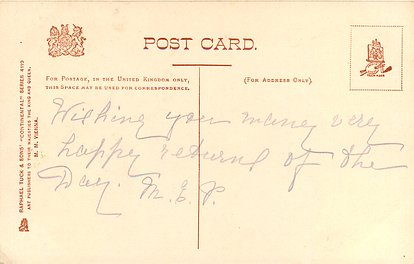 POST CARD.
FOR POSTAGE, IN THE UNITED KINGDOM ONLY,
THIS SPACE MAY BE USED FOR CORRESPONDENCE.
(FOR ADDRESS ONLY.)
Wishing you many very
happy returns of the
Day. M.E.P.
RAPHAEL TUCK & SONS' "CONTINENTAL" SERIES 4119
ART PUBLISHERS TO THEIR MAJESTIES THE KING AND QUEEN.
M. M. VIENNA.